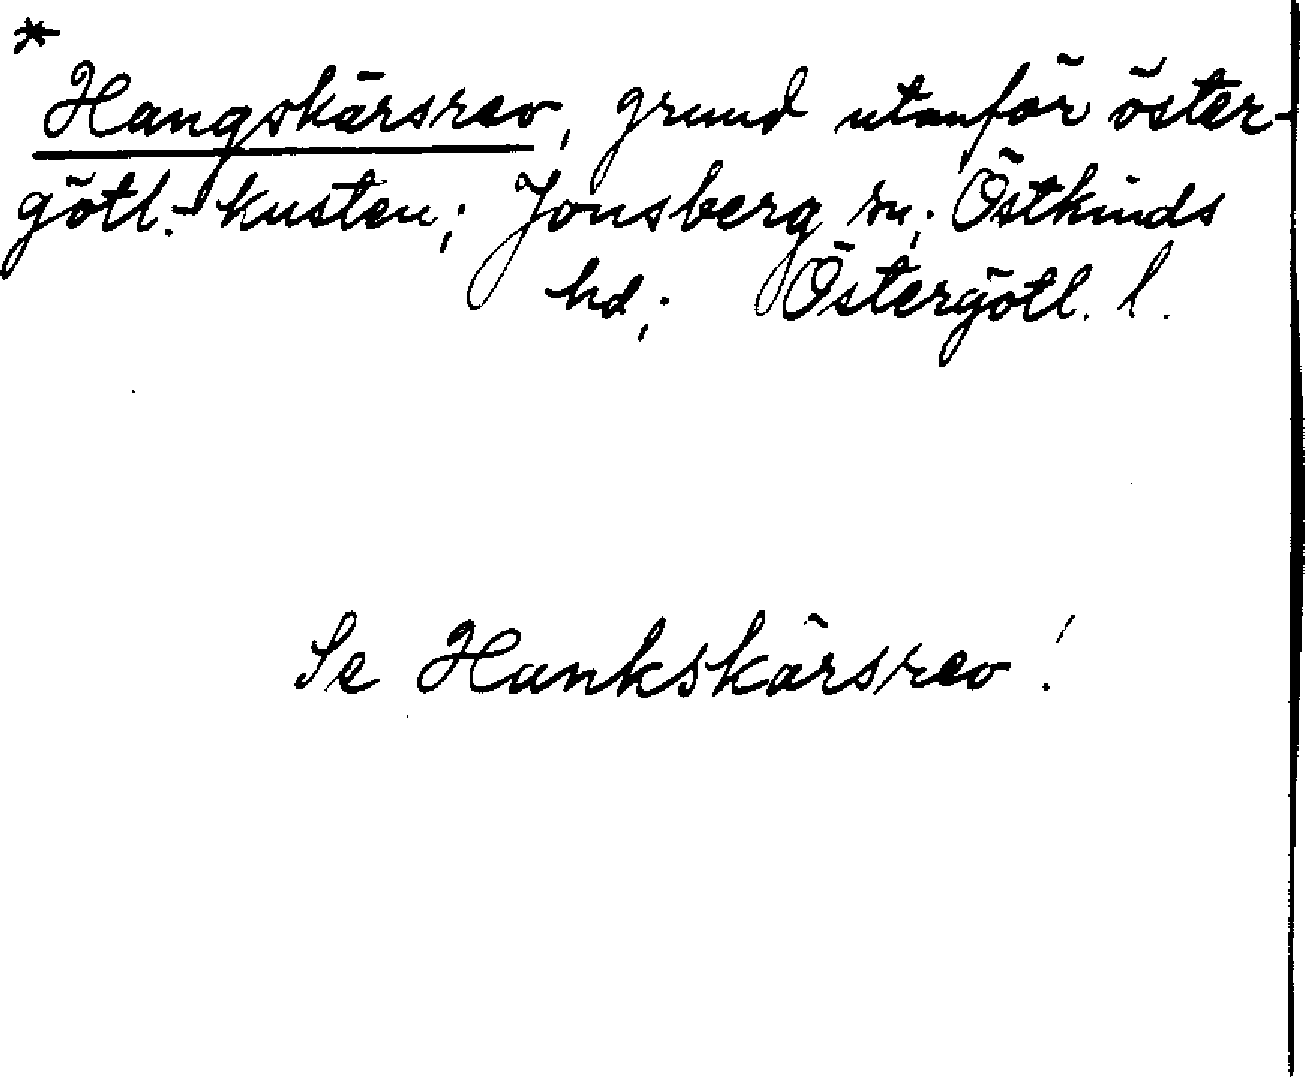 *
Hangskärsrev, grund utanför öster-
götl.-kusten; Jonsberg sn; Östkinds
hd; Östergötl. l.
Se Hankskärsrev!